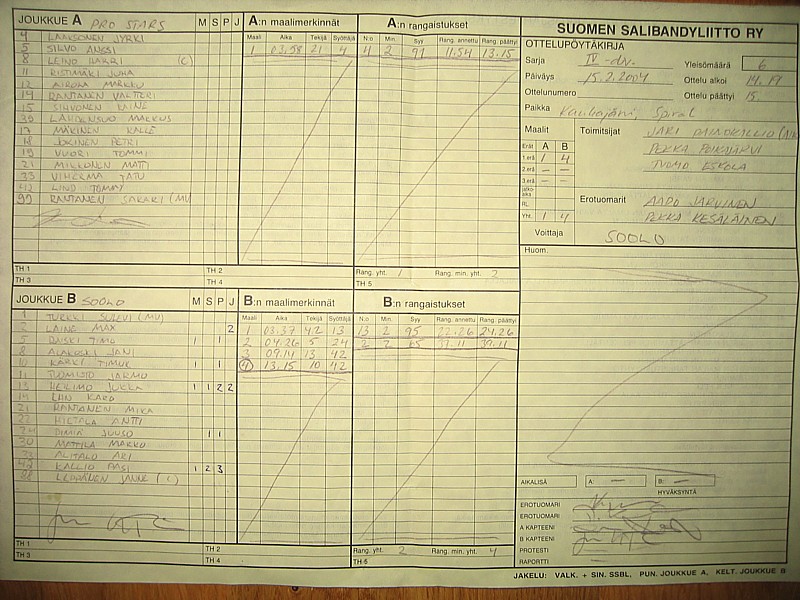 JOUKKUE A PRO STARS M S P J A:n maalimerkinnät A:n rangaistukset
Maali Aika Tekijä Syöttäjä N:o Min. Syy Rang. annettu Rang. päättyi
4 LAAKSONEN JYRKI
5 SILVO ANSSI 1 03.58 21 4 4 2 91 11.54 13.15
8 LEINO HARRI (C)
11 RISTIMÄKI JUHA
12 AIROLA MARKKU
14 RANTANEN VALTTERI
15 SIHVONEN
LAHDENSUO MARKUS
17 MÄKINEN KALLE
18 JOKINEN PETRI
19 VUORI TOMMI
21 MIKKONEN MATTI
33 VIHERMA
42 LIND TOMMY
99 RANTANEN SAKARI (MV)
TH 1 TH 2 Rang. yht. 1 Rang. min. yht. 2
TH 3 TH 4 TH 5
JOUKKUE B SOOLO M S P J B:n maalimerkinnät B:n rangaistukset
Maali Aika Tekijä Syöttäjä N:o Min. Syy Rang. annettu Rang. päättyi
1 TURKKI SULEVI (MV)
2 LAINE MAX 2 1 03.37 42 13 13 2 95 22.26 24.26
5 TIMO 1 1 2 04.26 5 24 2 2 37.11 39.11
8 ALAKOSKI JANI 3 09.14 13 42
10 KÄRKI 1 1 4 13.15 10 42
11 TUOMISTO JARMO
13 HEILIMO JUKKA 1 1 2 2
14 KARO
21 RANTANEN MIKA
22 HIETALA ANTTI
24 JUUSO 1 1
30 MATTILA MARKO
33 ALITALO ARI
42 KALLIO PASI 1 2 3
88 LEPPÄNEN JANNE (C)
TH 1 TH 2 Rang. yht. 2 Rang. min. yht. 4
TH 3 TH 4 TH 5
SUOMEN SALIBANDYLIITTO RY
OTTELUPÖYTÄKIRJA
Sarja IV-div. Yleisömäärä 6
Päiväys 15.2.2004 Ottelu alkoi 14.17
Ottelunumero Ottelu päättyi 15
Paikka Kauhajärvi, Spiral
Maalit Toimitsijat JARI PALMOKALLIO
Erät A B PEKKA POIKAJÄRVI
1.erä 1 4 TUOMO ESKOLA
2.erä – –
3.erä – –
jatkoaika
RL Erotuomarit AAPO JÄRVINEN
Yht. 1 4 PEKKA KESÄLÄINEN
Voittaja SOOLO
Huom.
AIKALISÄ A: — B: —
HYVÄKSYNTÄ
EROTUOMARI
EROTUOMARI
A KAPTEENI
B KAPTEENI
PROTESTI
RAPORTTI
JAKELU: VALK. + SIN. SSBL, PUN. JOUKKUE A, KELT. JOUKKUE B